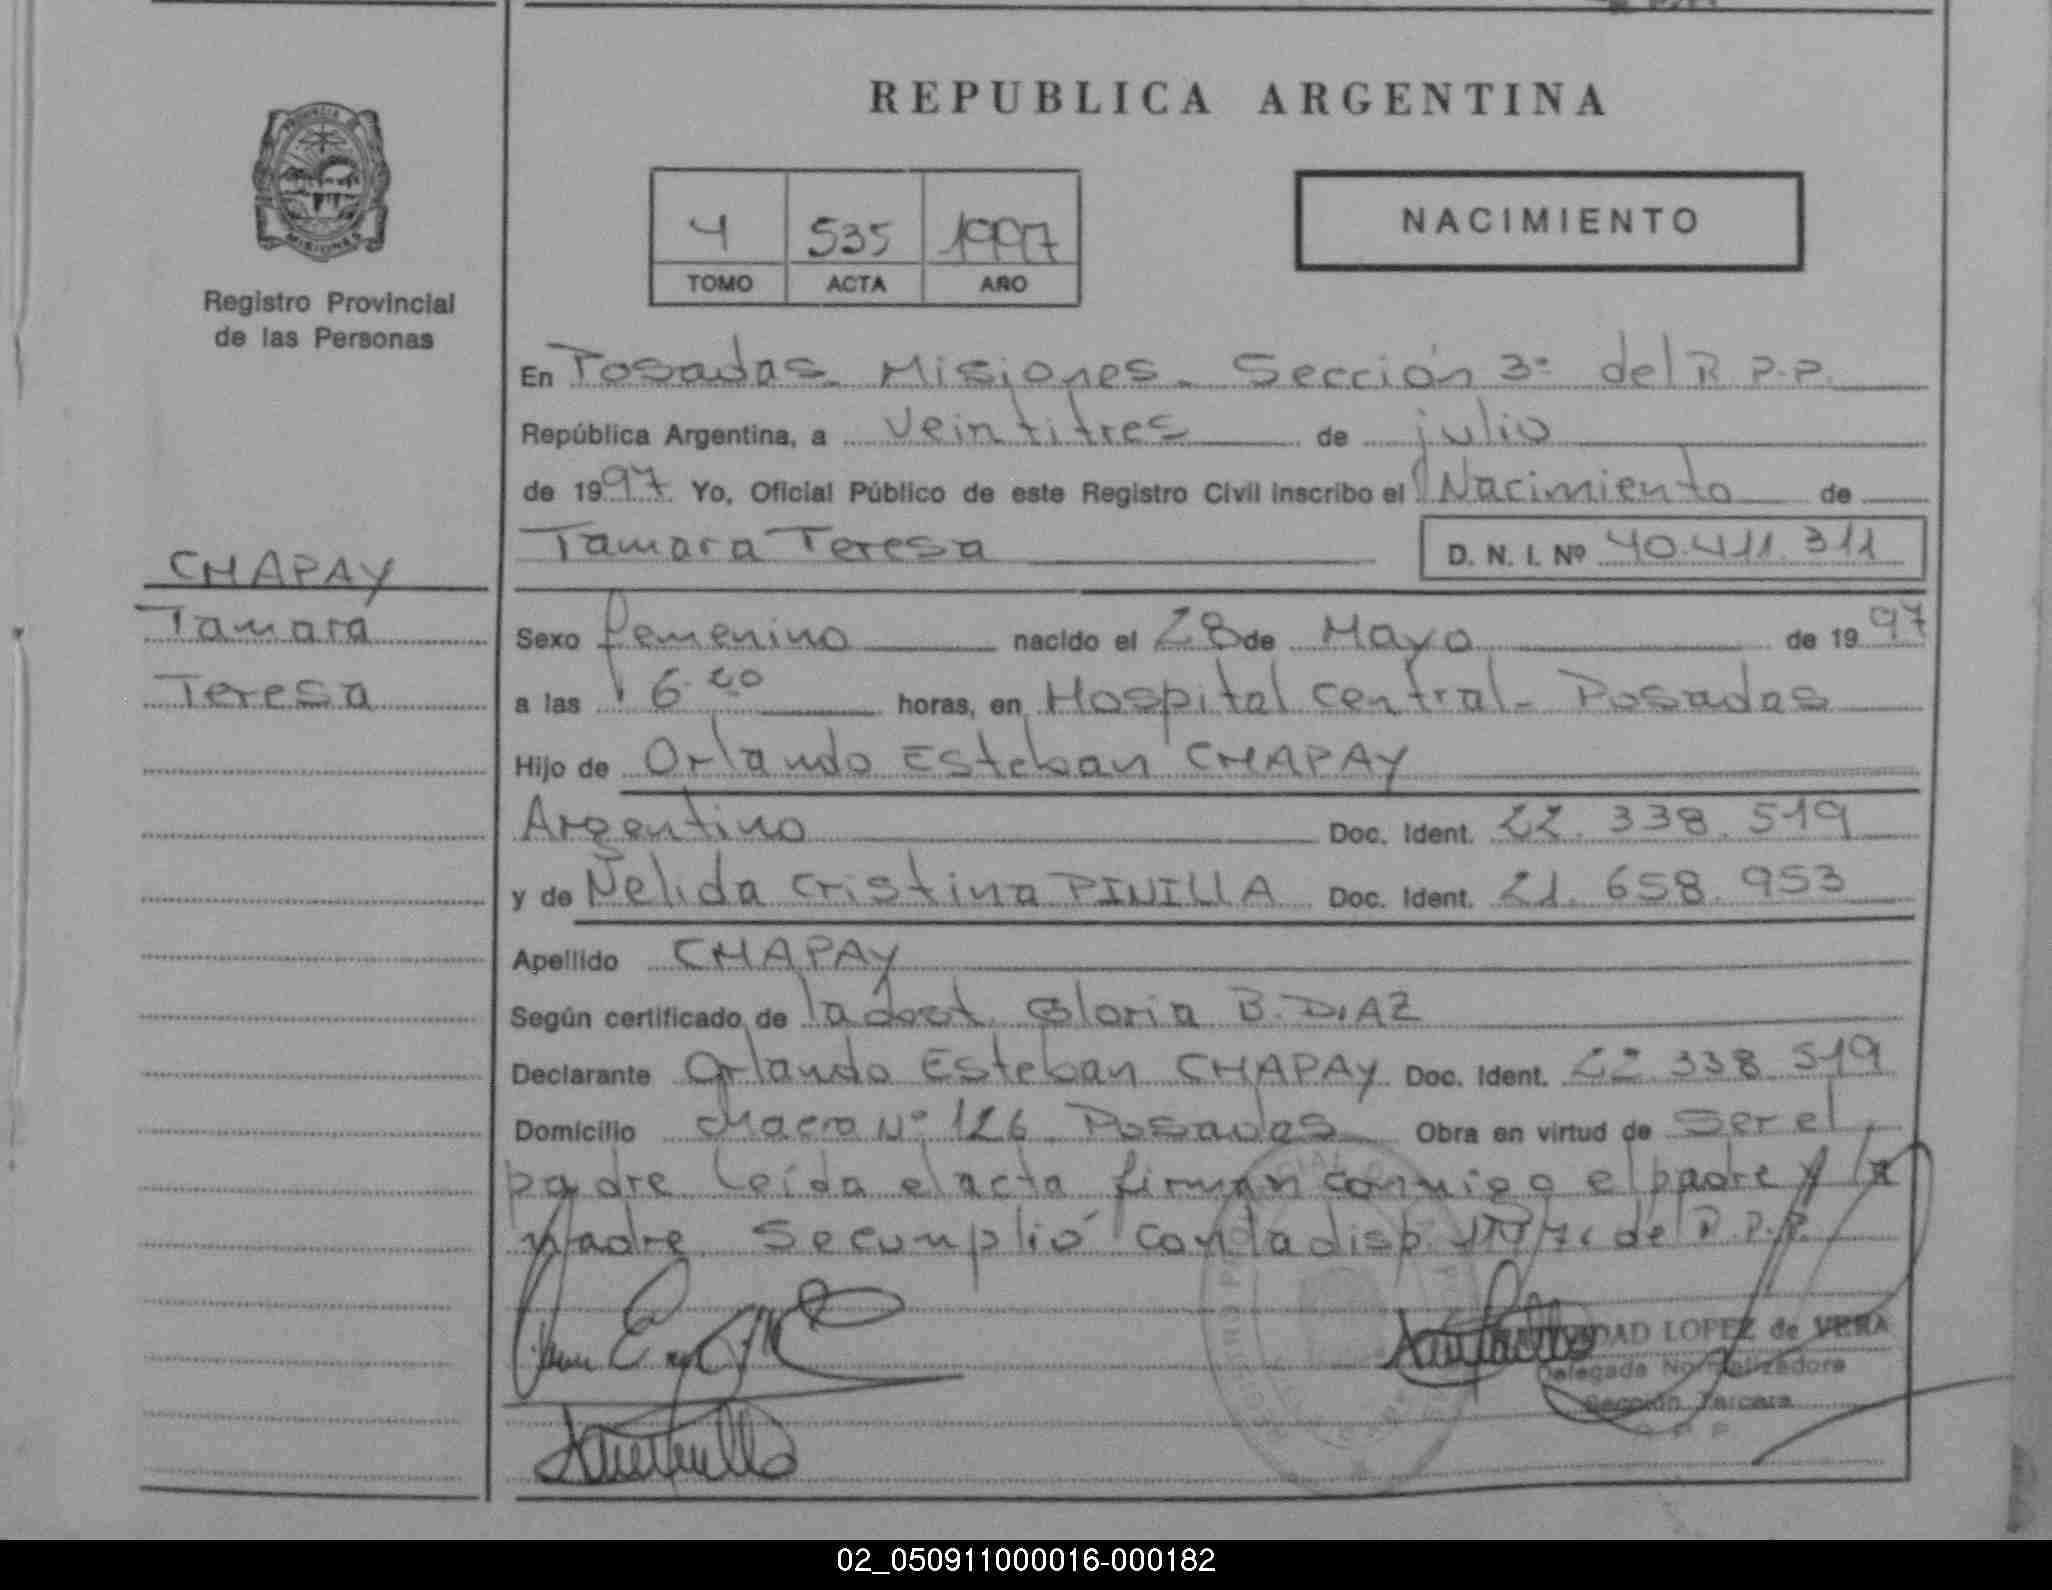 REPUBLICA ARGENTINA
PROVINCIA DE
MISIONES
Registro Provincial
de las Personas
4 535 1997
TOMO ACTA AÑO
NACIMIENTO
En Posadas Misiones. Sección 3ª del R.P.P.
República Argentina, a veintitres de julio
de 1997 Yo, Oficial Público de este Registro Civil inscribo el Nacimiento de
Tamara Teresa D. N. I. Nº 40.411.311
CHAPAY
Tamara
Teresa
Sexo femenino nacido el 28 de Mayo de 1997
a las 6.20 horas, en Hospital Central - Posadas
Hijo de Orlando Esteban CHAPAY
Argentino Doc. Ident. 22.338.519
y de Nelida Cristina PINILLA Doc. Ident. 21.658.953
Apellido CHAPAY
Según certificado de la doct. Gloria B. DIAZ
Declarante Orlando Esteban CHAPAY Doc. Ident. 22.338.519
Domicilio Nº 126 Posadas Obra en virtud de ser el
padre Leída el acta firman conmigo el padre y la
madre. Se cumplió con la disp. de R.P.P.
LOPEZ de VERA
Delegada Normalizadora
Sección Tercera
R P P
02_050911000016-000182